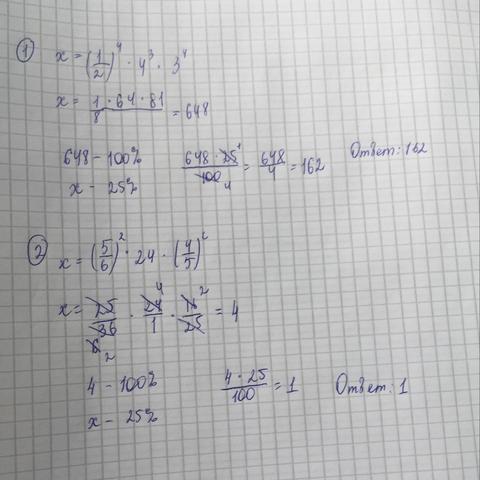 ① x = (1/2)⁴ · 4³ · 3⁴
x = 1 · 64 · 81 / 8 = 648
648 - 100% 648 · 25 / 100 = 648/4 = 162 Ответ: 162
x - 25%
② x = (5/6)² · 24 · (4/5)²
x = 25/36 · 24/1 · 16/25 = 4
4 - 100% 4 · 25 / 100 = 1 Ответ: 1
x - 25%